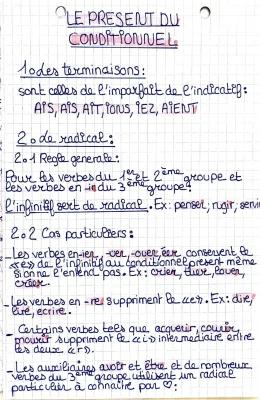 LE PRESENT DU
CONDITIONNEL
1o des terminaisons:
sont celles de l'imparfait de l'indicatif:
AIS, AIS, AIT, IONS, IEZ, AIENT
2o de radical:
2o1 Regle generale:
Pour les verbes du 1er et 2ème groupe et
les verbes en -ir du 3ème groupe:
l'infinitif sert de radical. Ex: penser, rugir, servir
2o2 Cas particuliers:
- Les verbes en-ier, -uer, -ouer, éer conservent le
«e» de l'infinitif au conditionnel present même
si on ne l'entend pas. Ex: crier, tuer, louer,
créer.
- Les verbes en -re suppriment le «e». Ex: dire,
lire, ecrire.
- Certains verbes tels que acquerir, courir,
mourir suppriment le «i» intermediaire entre
les deux «r».
- Les auxiliaires avoir et être et de nombreux
verbes du 3ème groupe utilisent un radical
particulier à connaitre par ♡: